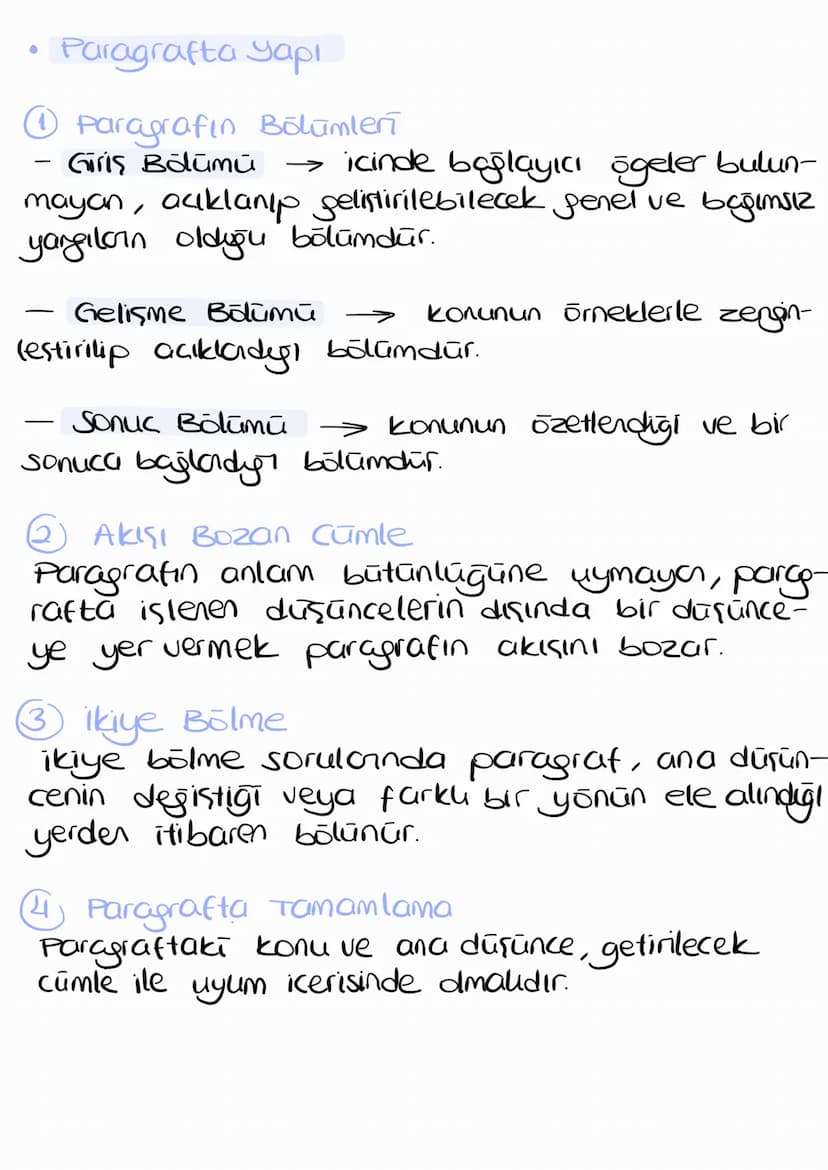 • Paragrafta Yapı
① Paragrafın Bölümleri
- Giriş Bölümü → içinde bağlayıcı ögeler bulun-
mayan, açıklanıp geliştirilebilecek genel ve bağımsız
yargıların olduğu bölümdür.
- Gelişme Bölümü → konunun örneklerle zengin-
leştirilip açıklandığı bölümdür.
- Sonuç Bölümü → konunun özetlendiği ve bir
sonuca bağlandığı bölümdür.
② Akışı Bozan Cümle
Paragrafın anlam bütünlüğüne uymayan, parag-
rafta işlenen düşüncelerin dışında bir düşünce-
ye yer vermek paragrafın akışını bozar.
③ İkiye Bölme
ikiye bölme sorularında paragraf, ana düşün-
cenin değiştiği veya farklı bir yönün ele alındığı
yerden itibaren bölünür.
④ Paragrafta Tamamlama
Paragraftaki konu ve ana düşünce, getirilecek
cümle ile uyum içerisinde olmalıdır.